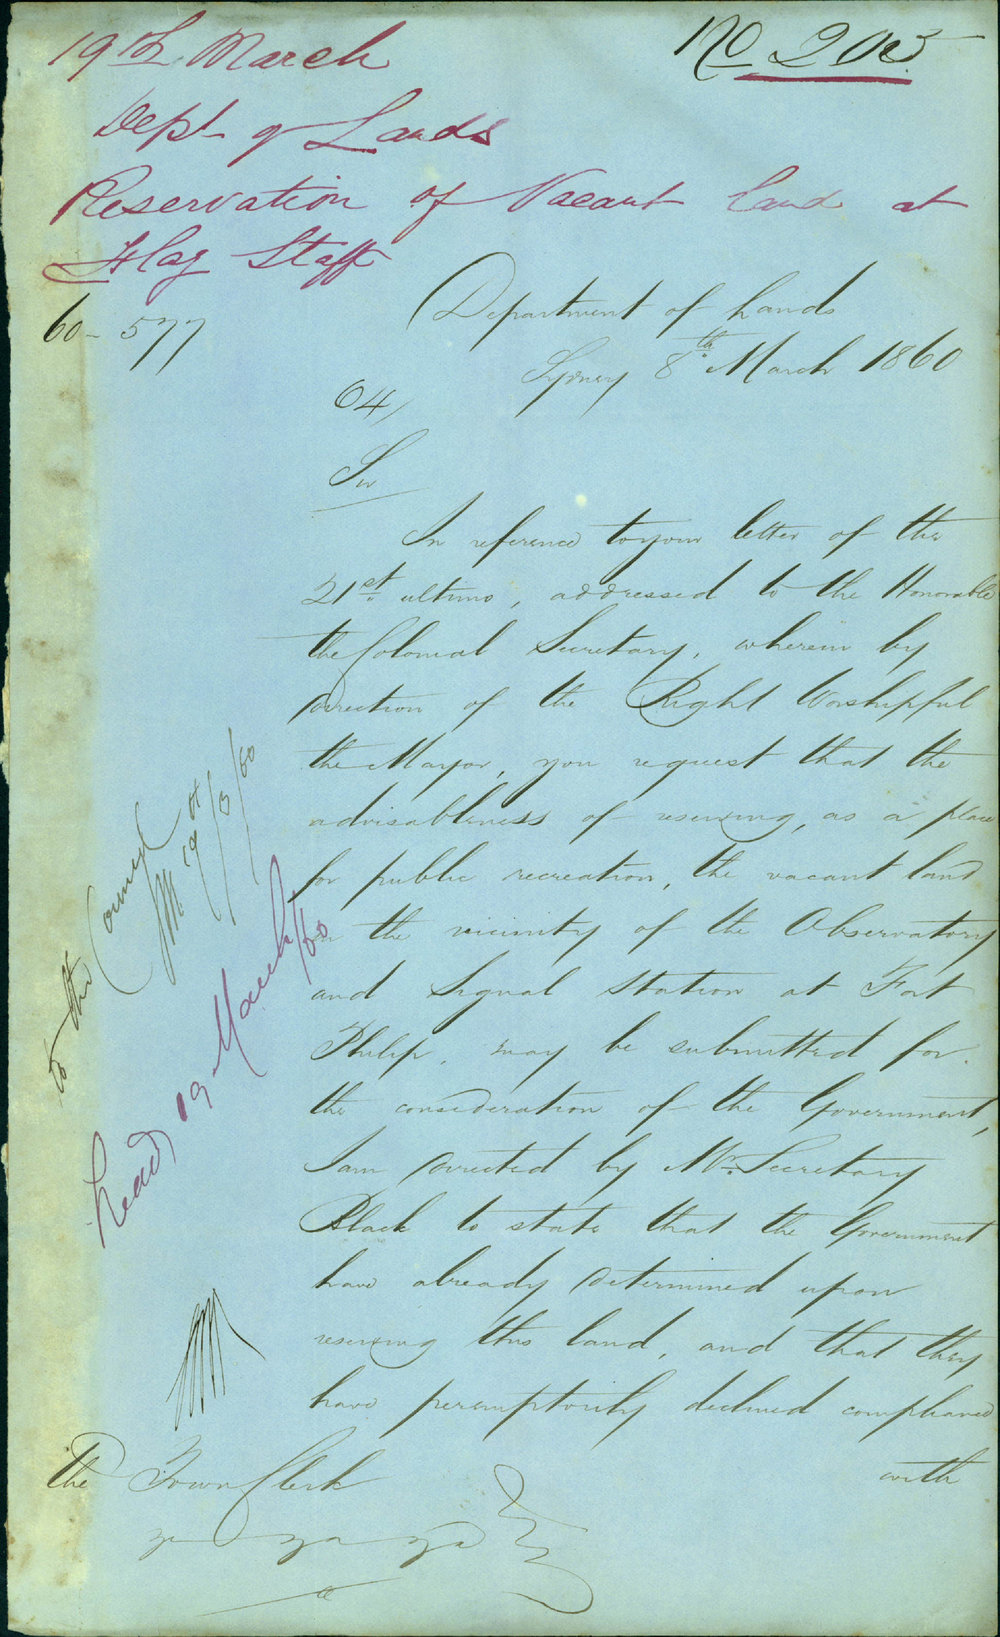 19th March
Dept of Lands
Reservation of Vacant Land at
Flag Staff
60-577
Department of Lands
Sydney 8th March 1860
Sir
In reference to your letter of the
21st ultimo, addressed to the Honorable
the Colonial Secretary, wherein by
direction of the Right Worshipful
the Mayor, you request that the
advisableness of reserving, as a place
for public recreation, the vacant land
in the vicinity of the Observatory
and Signal Station at Fort
Philip, may be submitted for
the consideration of the Government,
I am directed by Mr. Secretary
Black to state that the Government
have already determined upon
reserving this land, and that they
have peremptorily declined compliance
with
The Town Clerk
to the Council
19/3/60
Read 19 March/60